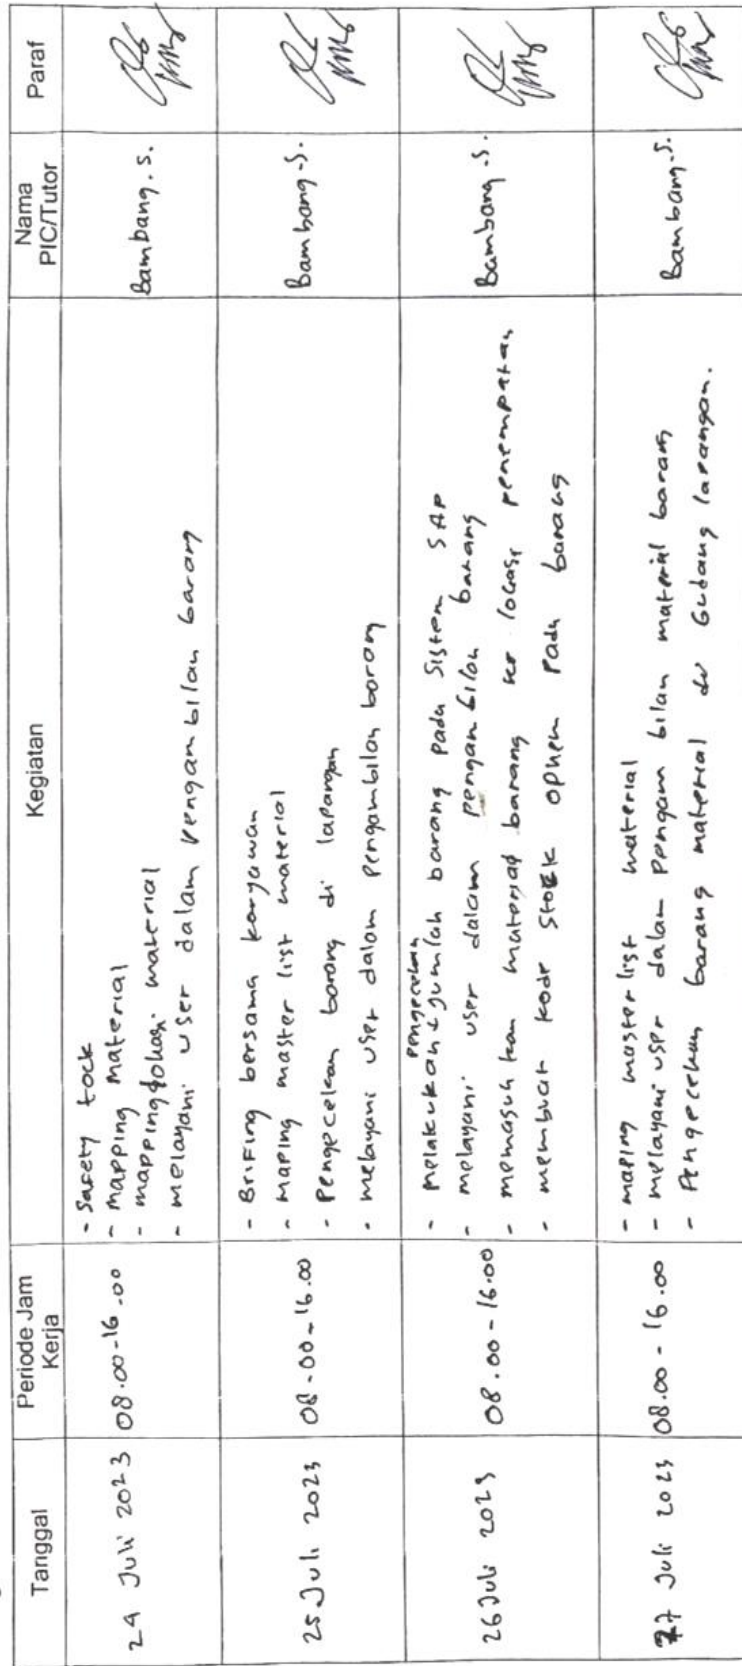 Tanggal
Periode Jam
Kerja
Kegiatan
Nama
PIC/Tutor
Paraf
24 Juli 2023
08.00-16.00
- Safety tock
- mapping material
- mapping lokasi material
- melayani user dalam pengambilan barang
Bambang. S.
25 Juli 2023
08-00-16.00
- Brifing bersama karyawan
- maping master list material
- Pengecekan barang di lapangan
- melayani user dalam pengambilan barang
Bambang.S.
26 Juli 2023
08.00-16.00
pengecekan
- melakukan jumlah barang pada Sistem SAP
- melayani user dalam pengambilan barang
- memasukkan material barang ke lokasi penempatan
- membuat kode Stock opnem pada barang
Bambang.S.
27 Juli 2023
08.00-16.00
- maping master list material
- melayani user dalam pengambilan material barang
- Pengecekan barang material di Gudang lapangan.
Bambang.S.